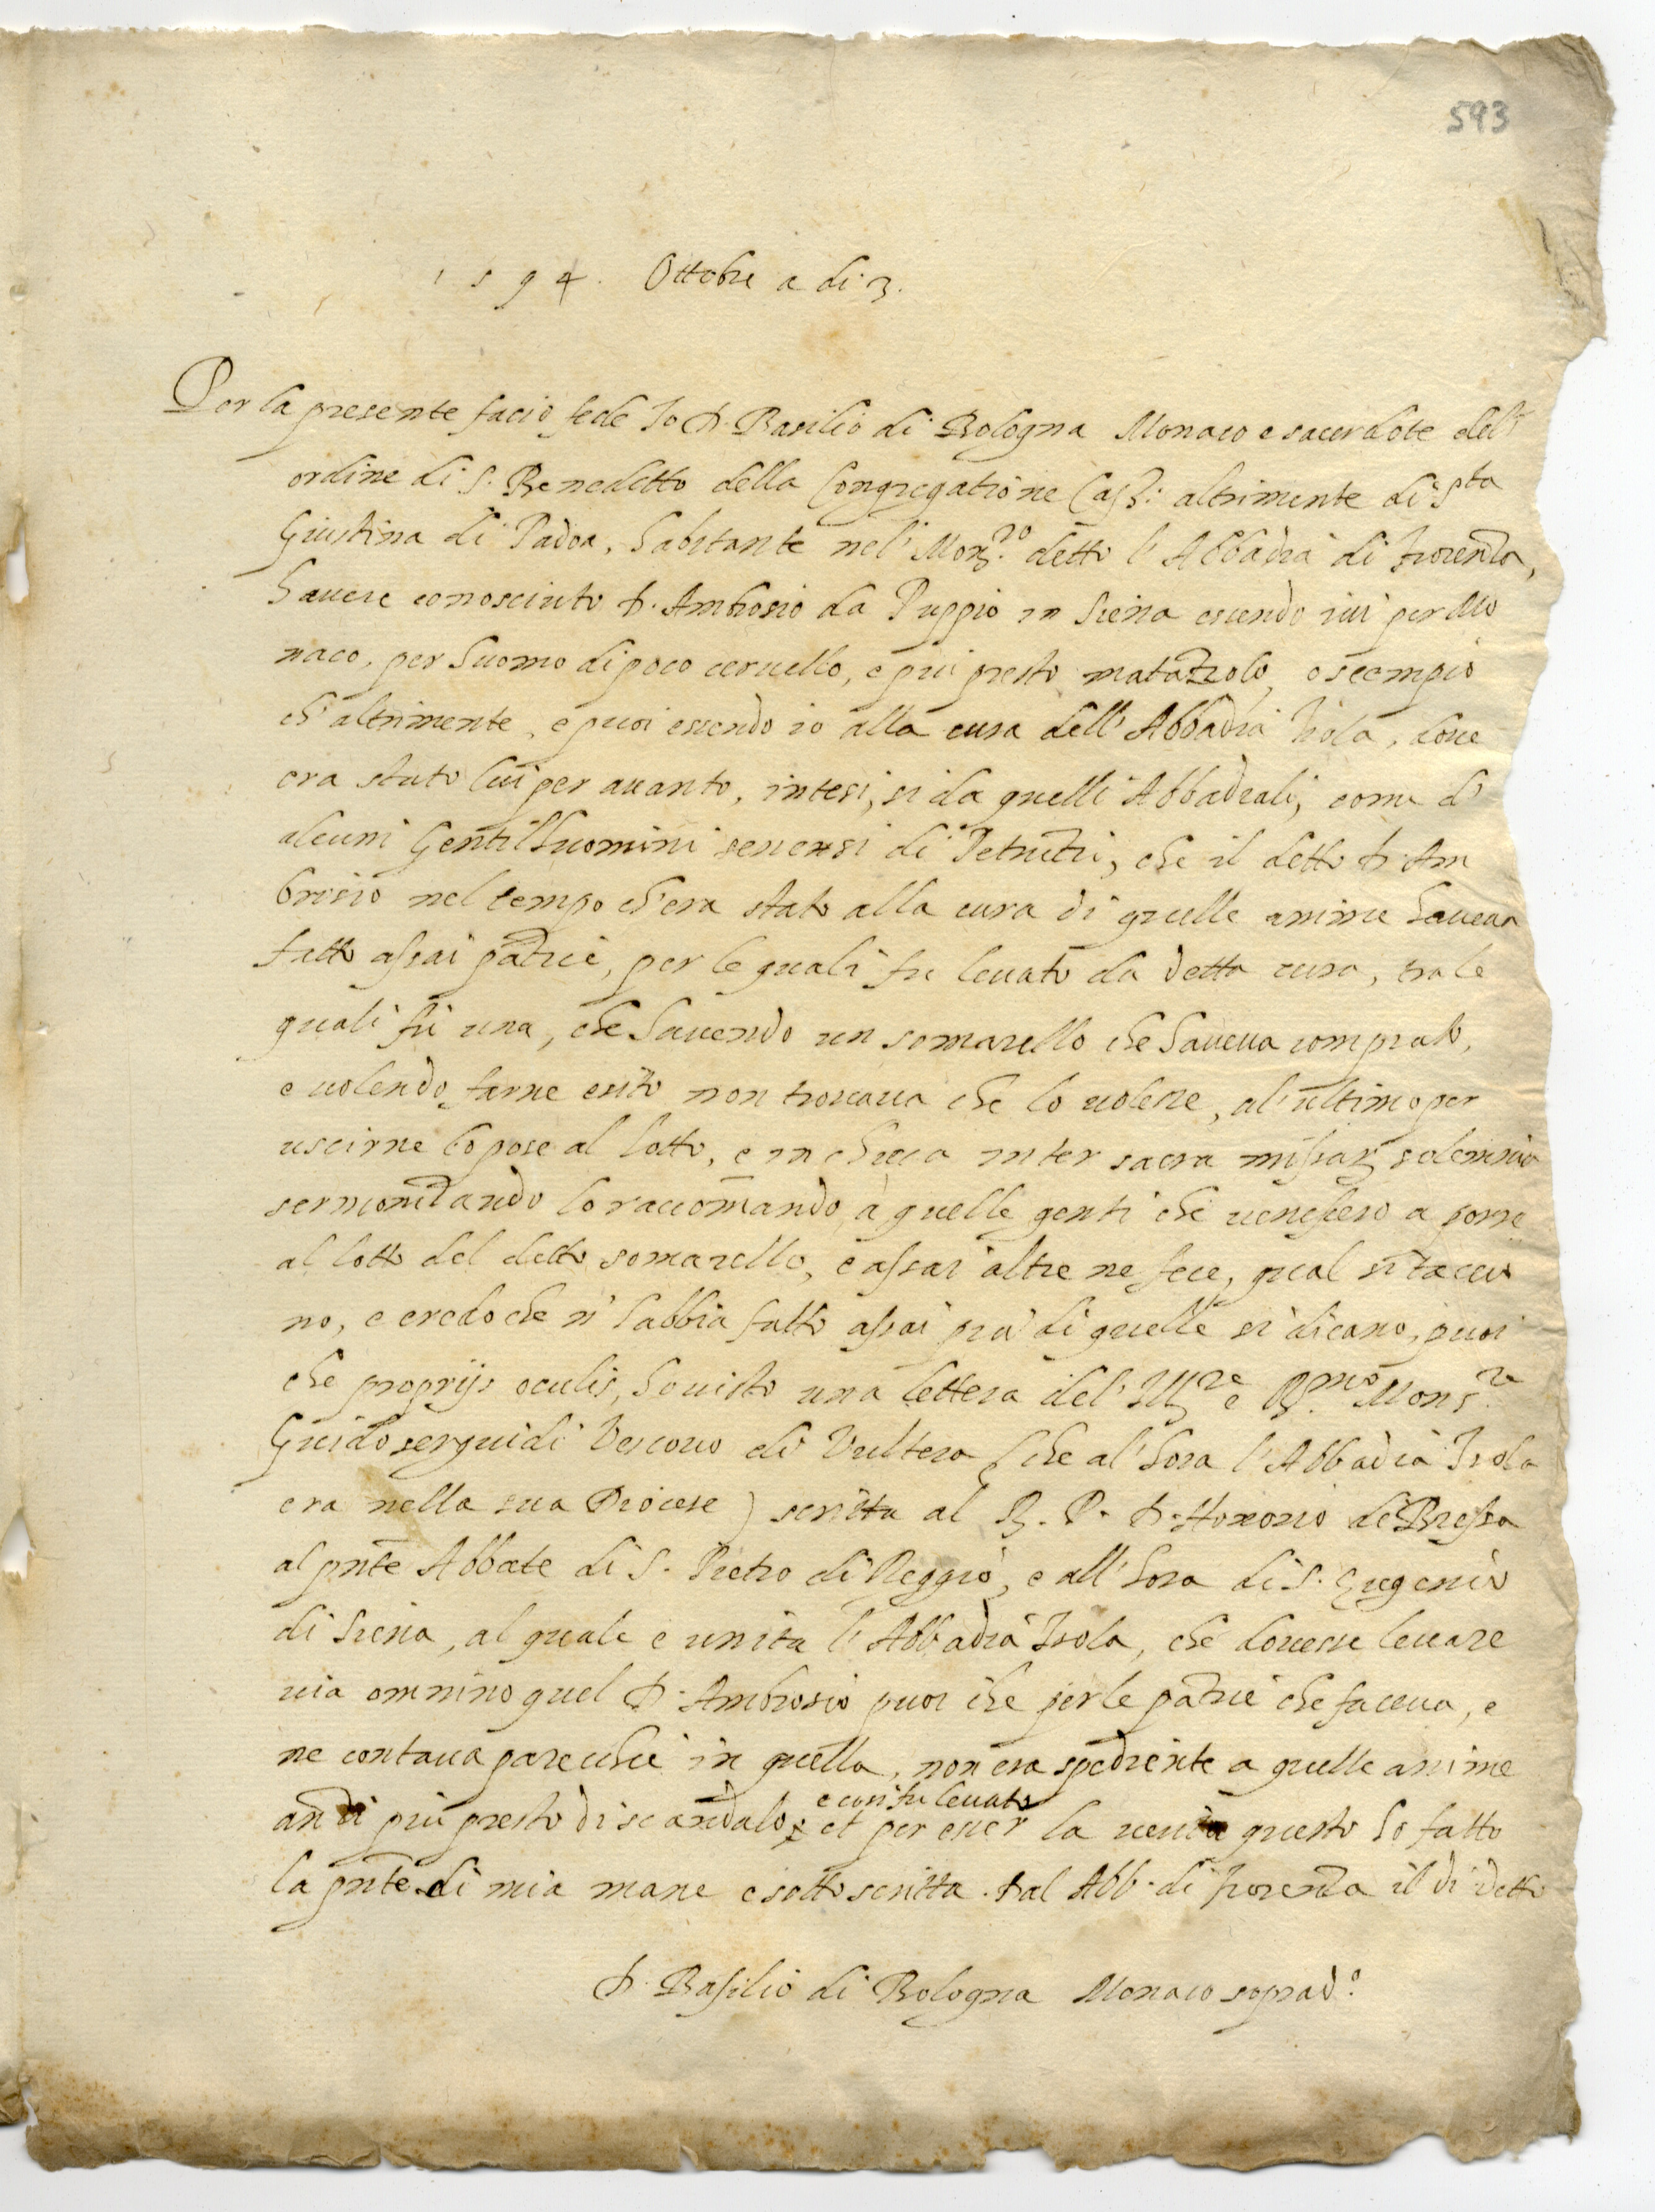 593
1594. Ottobre a di 3.
Per la presente facio fede Io D. Basilio di Bologna Monaco e sacerdote del'
ordine di S. Benedetto della Congregatione Cass: altrimente di Sta
Giustina di Padoa, habitante nel' Monro detto l'Abbadia di Fiorenza,
havere conosciuto D. Ambrosio da Puppio in Siena essendo ivi per Mo
naco, per huomo di poco cervello, e più presto matazzolo, e scempio
ch'altrimente, e puoi essendo io alla cura dell'Abbadia Isola, dove
era stato lui per avanto, intesi, si da quelli Abbadeali, come d'
alcuni Gentilhuomini senensi di Petrucci, che il detto D. Am
brosio nel tempo ch'era stato alla cura di quelle anime haveva
fatto assai pazzie, per le quali fu levato da detta cura, tra le
quali fù una, che havendo un somarello che haveva comprato,
e volendo farne esito non trovava che lo volesse, al'ultimo per
uscirne lo pose al lotto, e in chieca inter sacra missarum solemnia
sermonizando lo raccomandò à quelle genti che venissero a porre
al lotto del detto somarello, e assai altre ne fece, qual si taceva
no, e credo che n'habbia fatto assai più di quelle si dicano, puoi
che proprijs oculis, ho visto una lettera del' Illre e Rmo Monsre
Guido serguidi Vescovo di Vultera (che al'hora l'Abbadia Isola
era nella sua Diocese) scritta al R. P. D. Honorio di Bressa
al pnte Abbate di S. Pietro di Reggio, e all'hora di S. Eugenio
di Siena, al quale e unita l'Abbadia Isola, che dovesse levare
via omnino quel D. Ambrosio puoi che per le pazzie che faceva, e
ne contava parechie in quella, non era spediente a quelle anime
anzi più presto di scandalo, e cosi fu levato et per esser la verità questo ho fatto
la pnte di mia mane e sottoscritta. Dal Abb. di Fiorenza il di detto
D. Basilio di Bologna Monaco soprado.